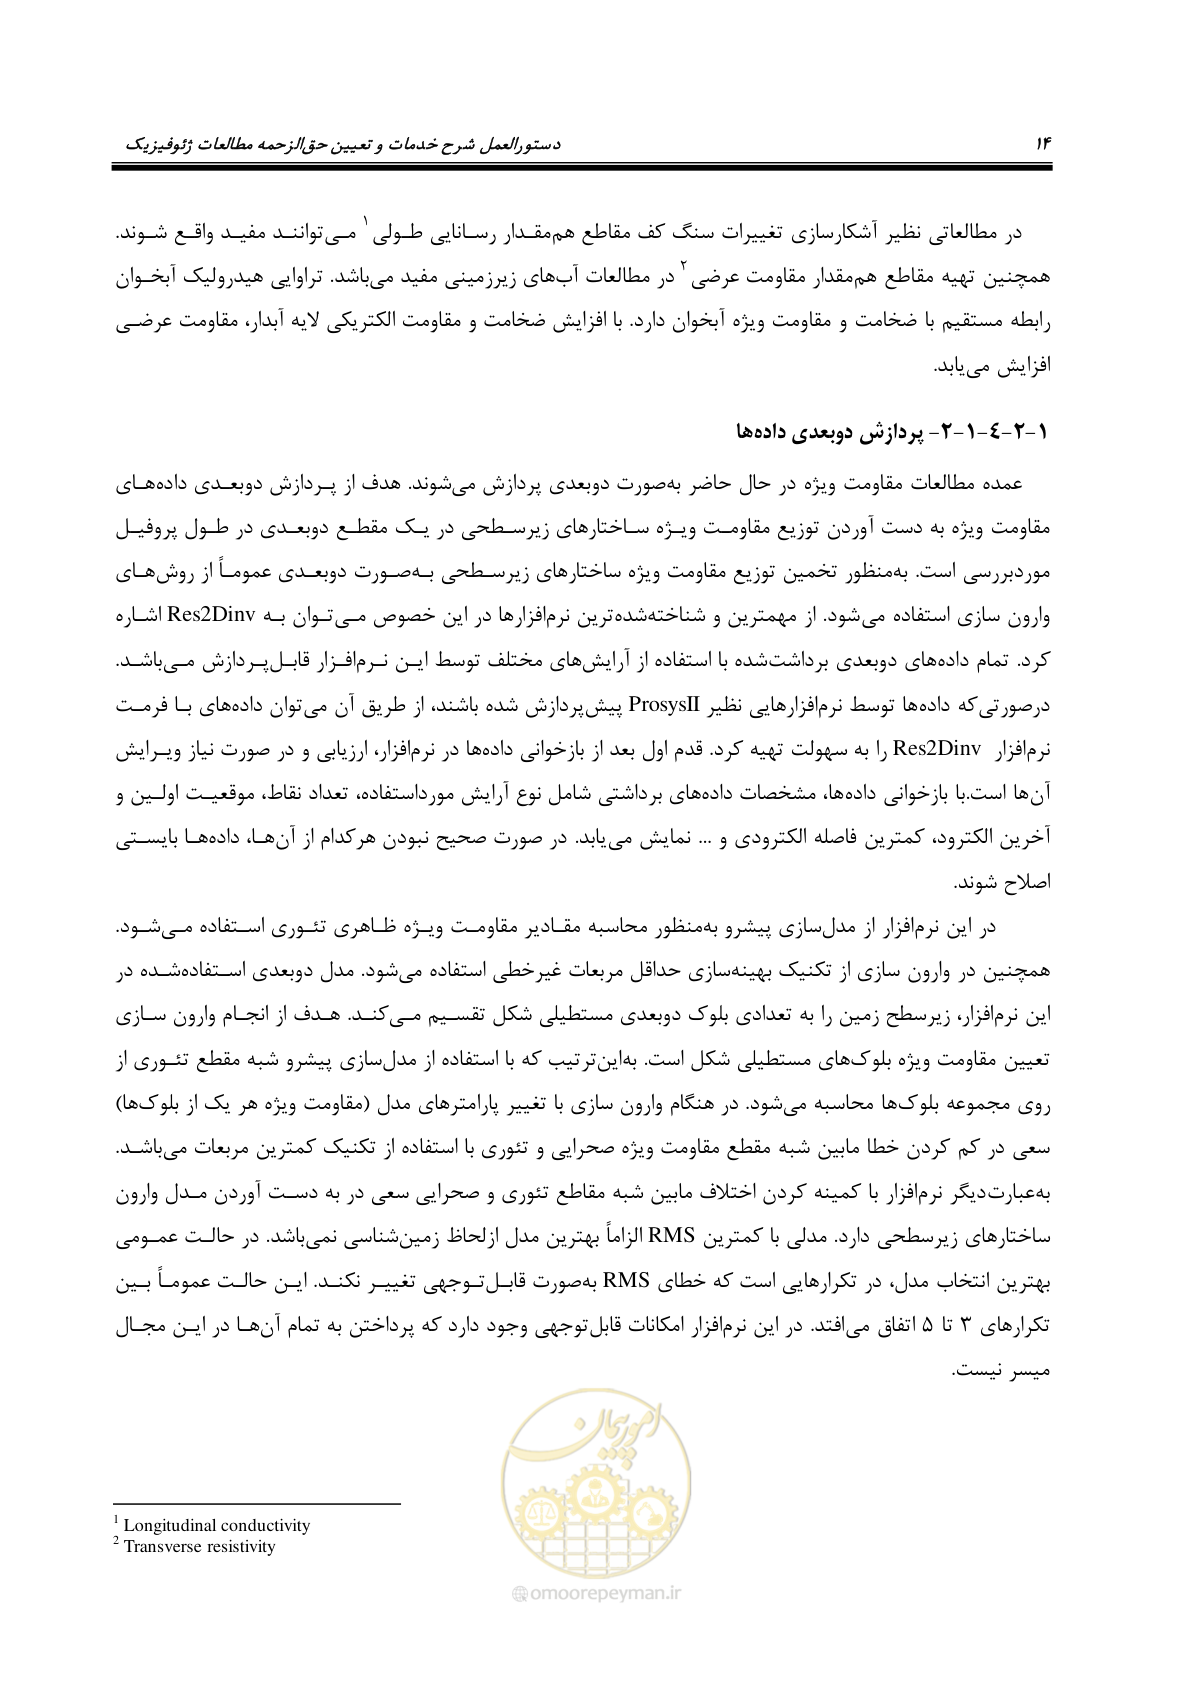 ۱۴
دستورالعمل شرح خدمات و تعیین حق‌الزحمه مطالعات ژئوفیزیک
در مطالعاتی نظیر آشکارسازی تغییرات سنگ کف مقاطع هم‌مقدار رسانایی طولی۱ می‌توانند مفید واقع شوند.
همچنین تهیه مقاطع هم‌مقدار مقاومت عرضی۲ در مطالعات آب‌های زیرزمینی مفید می‌باشد. تراوایی هیدرولیک آبخوان
رابطه مستقیم با ضخامت و مقاومت ویژه آبخوان دارد. با افزایش ضخامت و مقاومت الکتریکی لایه آبدار، مقاومت عرضی
افزایش می‌یابد.
۱-۲-۴-۱-۲- پردازش دوبعدی داده‌ها
عمده مطالعات مقاومت ویژه در حال حاضر به‌صورت دوبعدی پردازش می‌شوند. هدف از پردازش دوبعدی داده‌های
مقاومت ویژه به دست آوردن توزیع مقاومت ویژه ساختارهای زیرسطحی در یک مقطع دوبعدی در طول پروفیل
موردبررسی است. به‌منظور تخمین توزیع مقاومت ویژه ساختارهای زیرسطحی به‌صورت دوبعدی عموماً از روش‌های
وارون سازی استفاده می‌شود. از مهمترین و شناخته‌شده‌ترین نرم‌افزارها در این خصوص می‌توان به Res2Dinv اشاره
کرد. تمام داده‌های دوبعدی برداشت‌شده با استفاده از آرایش‌های مختلف توسط این نرم‌افزار قابل‌پردازش می‌باشد.
درصورتی‌که داده‌ها توسط نرم‌افزارهایی نظیر ProsysII پیش‌پردازش شده باشند، از طریق آن می‌توان داده‌های با فرمت
نرم‌افزار Res2Dinv را به سهولت تهیه کرد. قدم اول بعد از بازخوانی داده‌ها در نرم‌افزار، ارزیابی و در صورت نیاز ویرایش
آن‌ها است.با بازخوانی داده‌ها، مشخصات داده‌های برداشتی شامل نوع آرایش مورداستفاده، تعداد نقاط، موقعیت اولین و
آخرین الکترود، کمترین فاصله الکترودی و ... نمایش می‌یابد. در صورت صحیح نبودن هرکدام از آن‌ها، داده‌ها بایستی
اصلاح شوند.
در این نرم‌افزار از مدل‌سازی پیشرو به‌منظور محاسبه مقادیر مقاومت ویژه ظاهری تئوری استفاده می‌شود.
همچنین در وارون سازی از تکنیک بهینه‌سازی حداقل مربعات غیرخطی استفاده می‌شود. مدل دوبعدی استفاده‌شده در
این نرم‌افزار، زیرسطح زمین را به تعدادی بلوک دوبعدی مستطیلی شکل تقسیم می‌کند. هدف از انجام وارون سازی
تعیین مقاومت ویژه بلوک‌های مستطیلی شکل است. به‌این‌ترتیب که با استفاده از مدل‌سازی پیشرو شبه مقطع تئوری از
روی مجموعه بلوک‌ها محاسبه می‌شود. در هنگام وارون سازی با تغییر پارامترهای مدل (مقاومت ویژه هر یک از بلوک‌ها)
سعی در کم کردن خطا مابین شبه مقطع مقاومت ویژه صحرایی و تئوری با استفاده از تکنیک کمترین مربعات می‌باشد.
به‌عبارت‌دیگر نرم‌افزار با کمینه کردن اختلاف مابین شبه مقاطع تئوری و صحرایی سعی در به دست آوردن مدل وارون
ساختارهای زیرسطحی دارد. مدلی با کمترین RMS الزاماً بهترین مدل ازلحاظ زمین‌شناسی نمی‌باشد. در حالت عمومی
بهترین انتخاب مدل، در تکرارهایی است که خطای RMS به‌صورت قابل‌توجهی تغییر نکند. این حالت عموماً بین
تکرارهای ۳ تا ۵ اتفاق می‌افتد. در این نرم‌افزار امکانات قابل‌توجهی وجود دارد که پرداختن به تمام آن‌ها در این مجال
میسر نیست.
امور پیمان
1 Longitudinal conductivity
2 Transverse resistivity
@omoorepeyman.ir